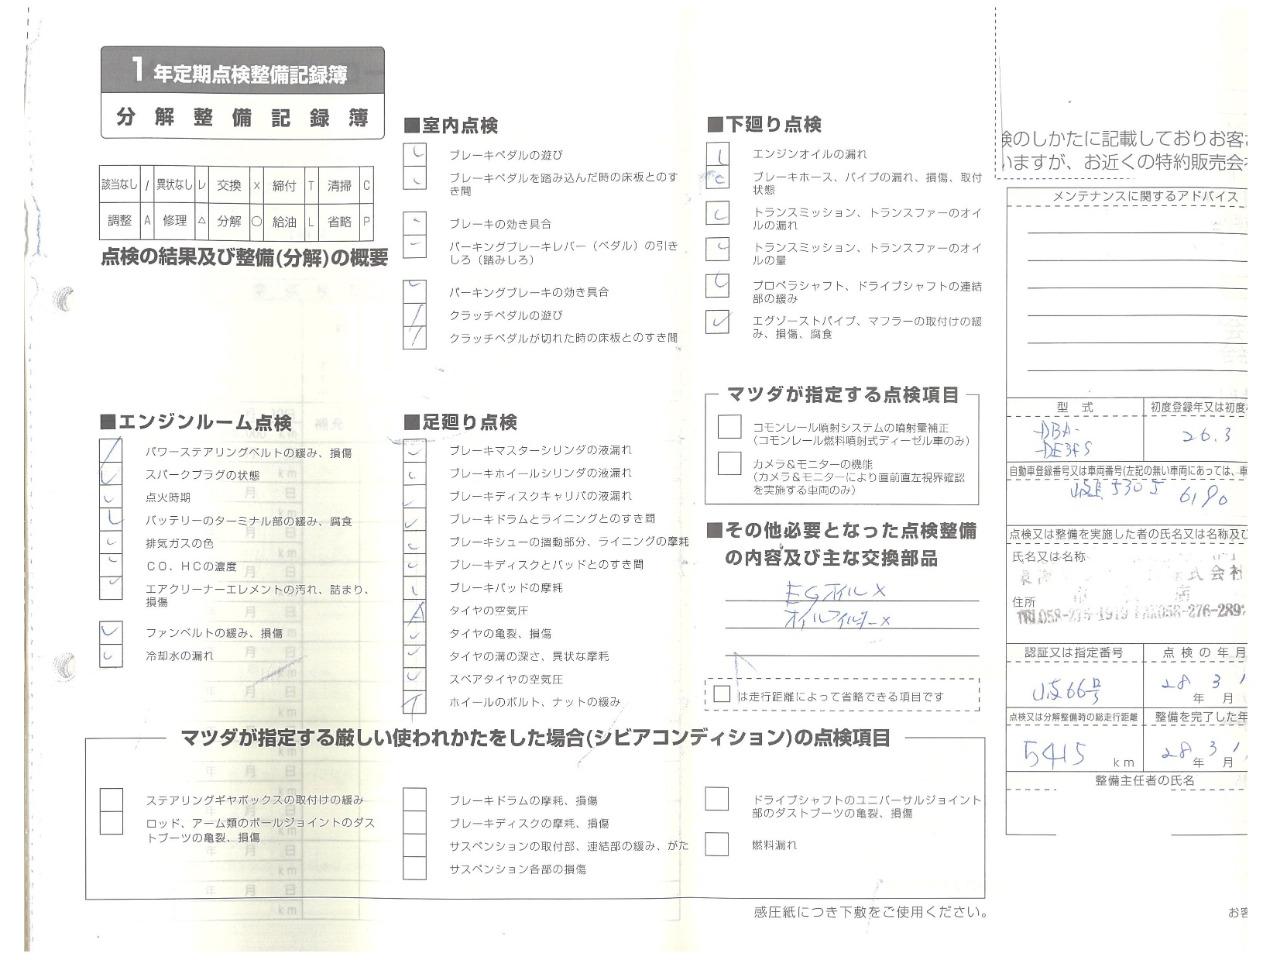 1年定期点検整備記録簿
分解整備記録簿
該当なし / 異状なし レ 交換 × 締付 T 清掃 C
調整 A 修理 △ 分解 ○ 給油 L 省略 P
点検の結果及び整備(分解)の概要
■エンジンルーム点検
パワーステアリングベルトの緩み、損傷
スパークプラグの状態
点火時期
バッテリーのターミナル部の緩み、腐食
排気ガスの色
CO、HCの濃度
エアクリーナーエレメントの汚れ、詰まり、
損傷
ファンベルトの緩み、損傷
冷却水の漏れ
■室内点検
ブレーキペダルの遊び
ブレーキペダルを踏み込んだ時の床板とのす
き間
ブレーキの効き具合
パーキングブレーキレバー(ペダル)の引き
しろ(踏みしろ)
パーキングブレーキの効き具合
クラッチペダルの遊び
クラッチペダルが切れた時の床板とのすき間
■足廻り点検
ブレーキマスターシリンダの液漏れ
ブレーキホイールシリンダの液漏れ
ブレーキディスクキャリパの液漏れ
ブレーキドラムとライニングとのすき間
ブレーキシューの摺動部分、ライニングの摩耗
ブレーキディスクとパッドとのすき間
ブレーキパッドの摩耗
タイヤの空気圧
タイヤの亀裂、損傷
タイヤの溝の深さ、異状な摩耗
スペアタイヤの空気圧
ホイールのボルト、ナットの緩み
■下廻り点検
エンジンオイルの漏れ
ブレーキホース、パイプの漏れ、損傷、取付
状態
トランスミッション、トランスファーのオイ
ルの漏れ
トランスミッション、トランスファーのオイ
ルの量
プロペラシャフト、ドライブシャフトの連結
部の緩み
エグゾーストパイプ、マフラーの取付けの緩
み、損傷、腐食
マツダが指定する点検項目
コモンレール噴射システムの噴射量補正
(コモンレール燃料噴射式ディーゼル車のみ)
カメラ&モニターの機能
(カメラ&モニターにより直前直左視界確認
を実施する車両のみ)
■その他必要となった点検整備
の内容及び主な交換部品
EGオイル×
オイルフィルター×
□は走行距離によって省略できる項目です
検のしかたに記載しておりお客さ
いますが、お近くの特約販売会社
メンテナンスに関するアドバイス
型式 初度登録年又は初度
DBA-
DE3FS
26.3
自動車登録番号又は車両番号(左記の無い車両にあっては、車
530 6190
点検又は整備を実施した者の氏名又は名称及び
氏名又は名称
式会社
住所
認証又は指定番号 点検の年月
28年3月1
点検又は分解整備時の総走行距離 整備を完了した年
5415 km 28年3月1
整備主任者の氏名
マツダが指定する厳しい使われかたをした場合(シビアコンディション)の点検項目
ステアリングギヤボックスの取付けの緩み
ロッド、アーム類のボールジョイントのダス
トブーツの亀裂、損傷
ブレーキドラムの摩耗、損傷
ブレーキディスクの摩耗、損傷
サスペンションの取付部、連結部の緩み、がた
サスペンション各部の損傷
ドライブシャフトのユニバーサルジョイント
部のダストブーツの亀裂、損傷
燃料漏れ
感圧紙につき下敷をご使用ください。
お客